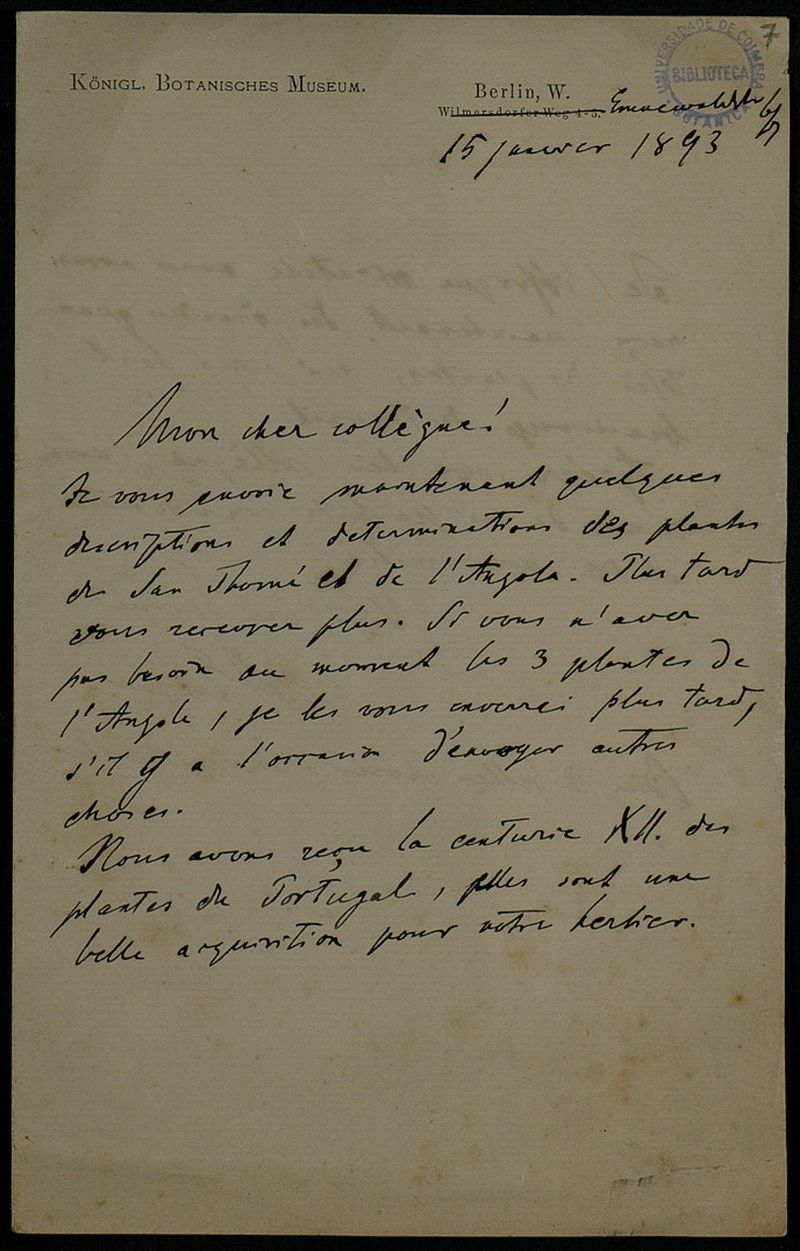 7
UNIVERSIDADE DE COIMBRA
BIBLIOTECA
BOTANICA
KÖNIGL. BOTANISCHES MUSEUM.
Berlin, W.
Wilmersdorfer Weg 4-5. 6/7
15 janvier 1893
Mon cher collègue!
Je vous envoie maintenant quelques
descriptions et determinations des plantes
de San Thomé et de l'Angola. Plus tard
vous recevrer plus. Si vous n'aver
pas besoin au moment les 3 plantes de
l'Angola, je les vous enverrai plus tard,
s'il y a l'occasion d'envoyer autres
choses.
Nous avons reçu la centurie XII. des
plantes du Portugal, elles sont une
belle acquisition pour notre herbier.